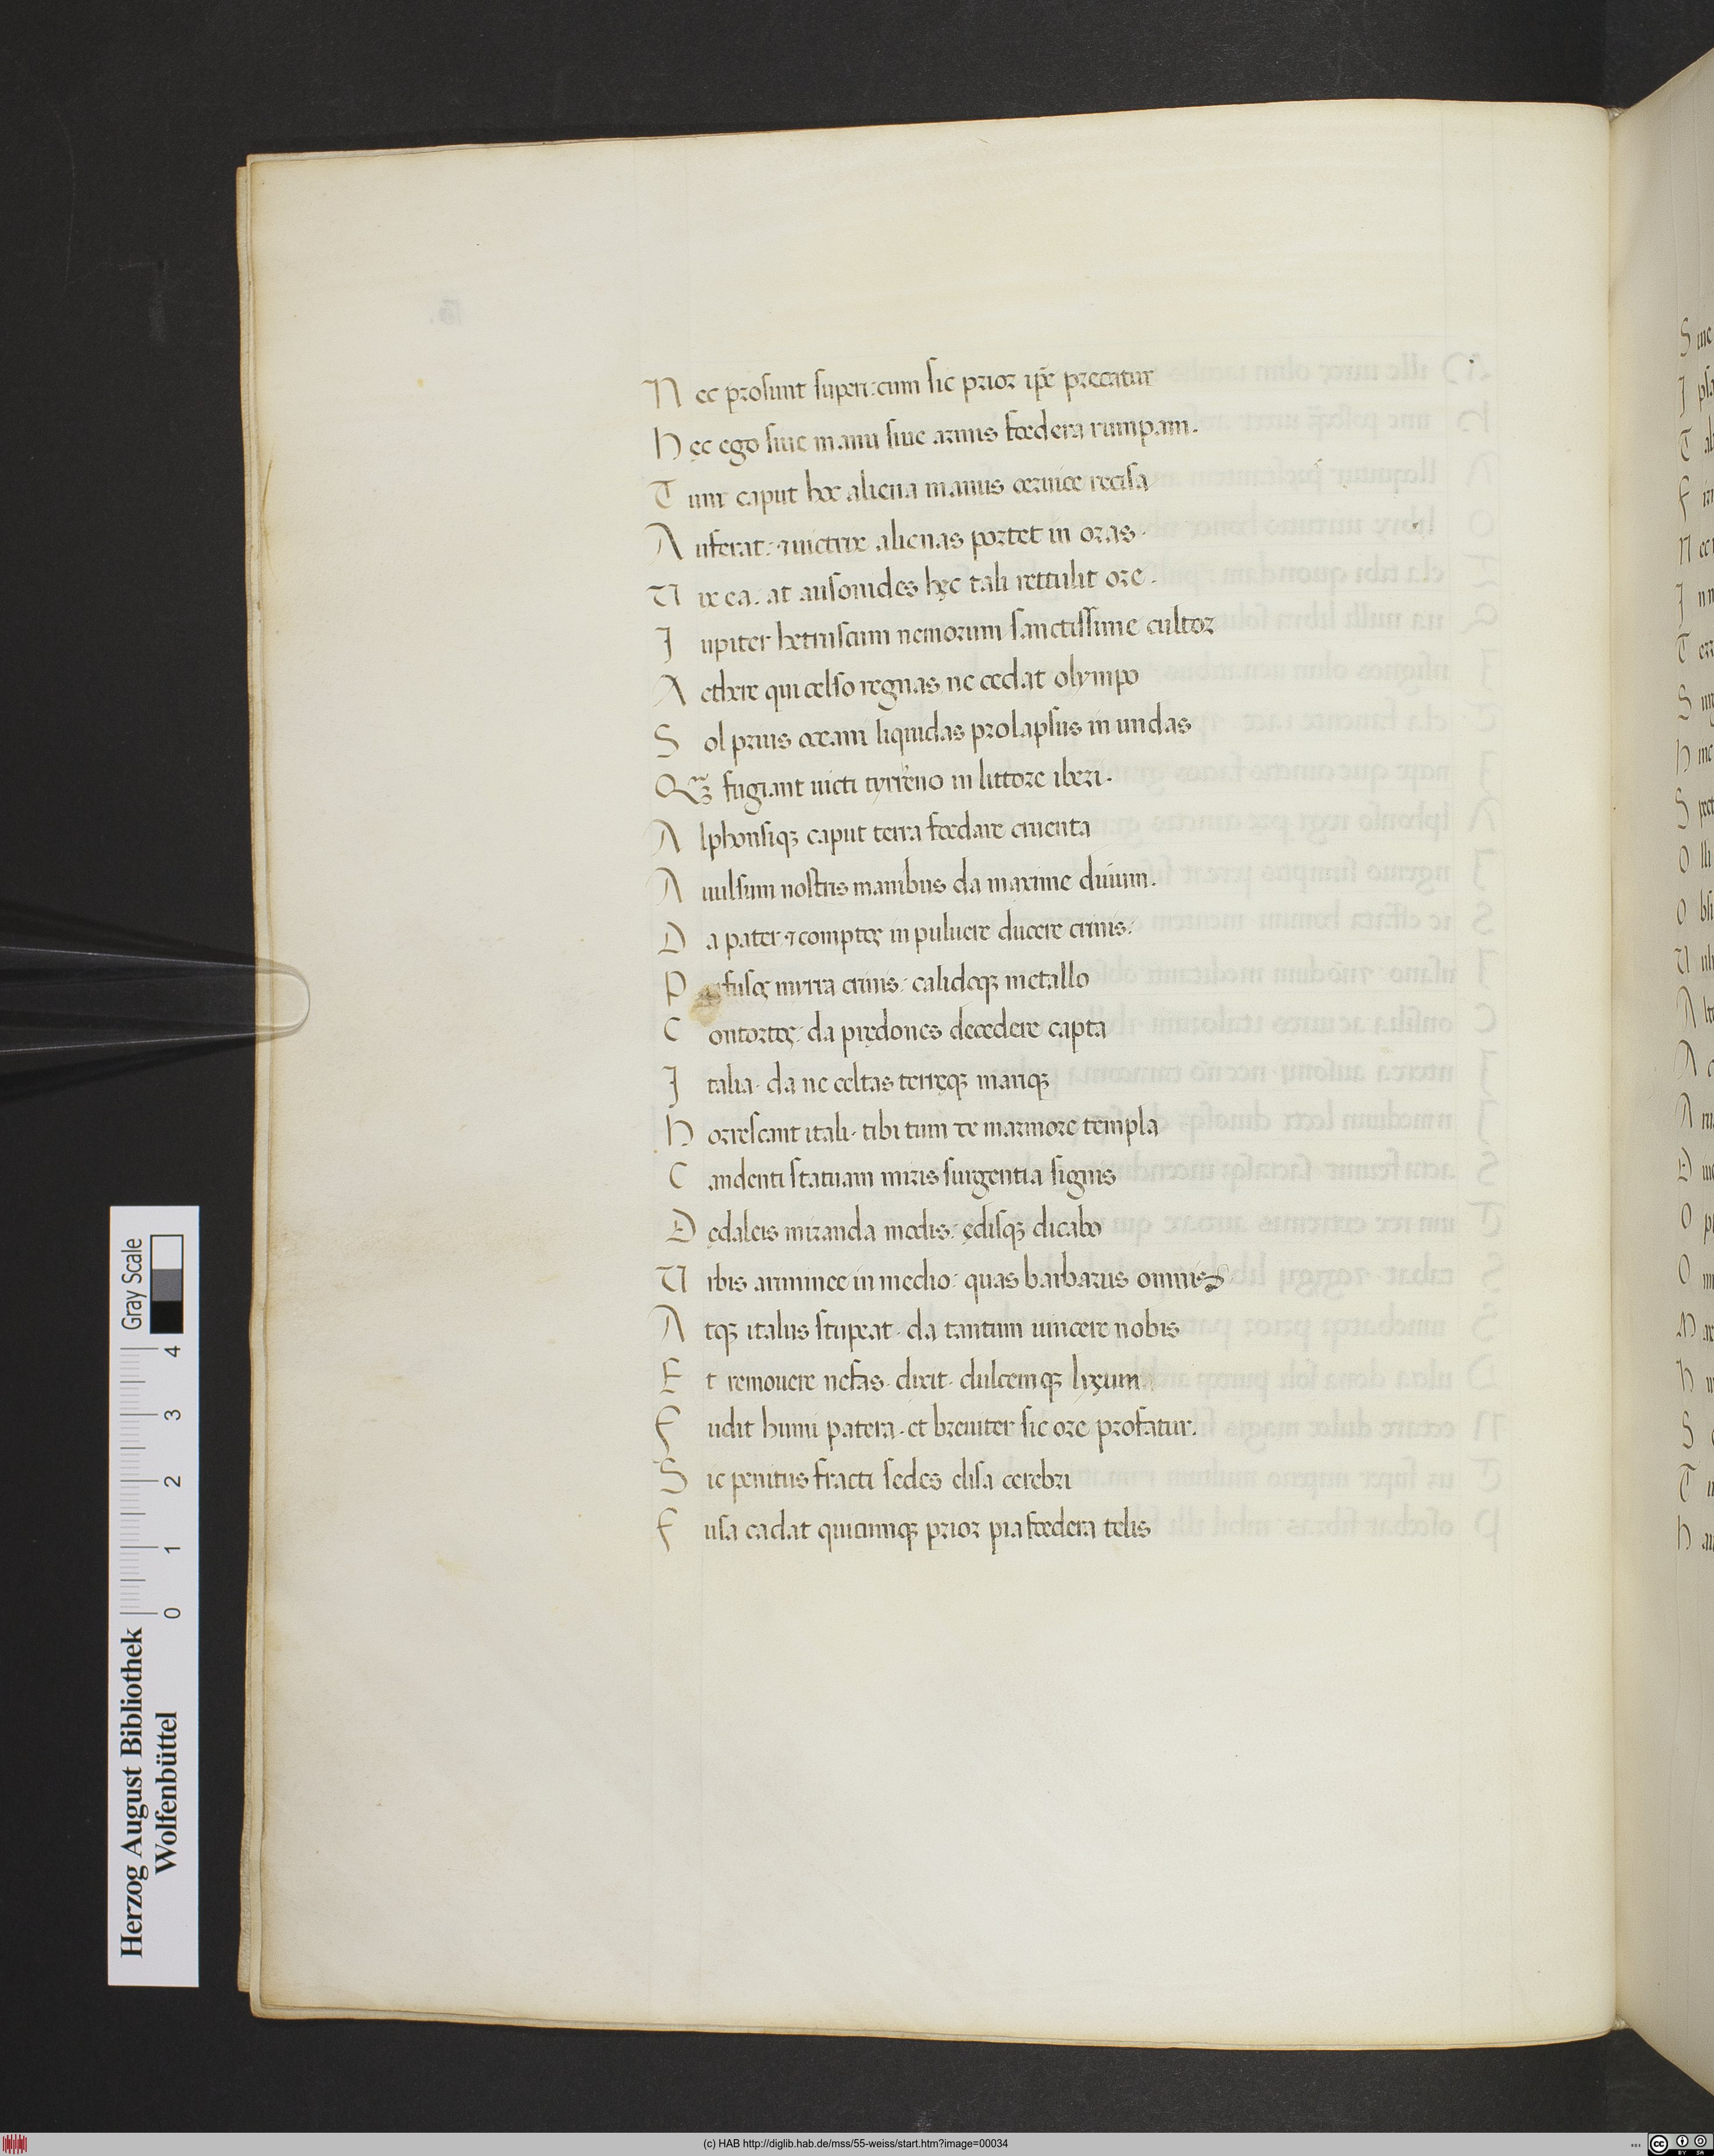 N ec prosunt superi: cum sic prior ip̄e precatur
H ęc ego siue manu siue armis fœdera rumpam.
T unc caput hoc aliena manus ceruice recisa
A uferat: ⁊ uictrix alienas portet in oras.
U ix ea. at ausonides hęc tali rettulit ore.
I upiter hetruscum nemorum sanctissime cultor
A ethere qui celso regnas ne cedat olympo
S ol prius oceani liquidas prolapsus in undas
Qꝫ fugiant uicti tyrreno in littore iberi.
A lphonsiqꝫ caput terra fœdare cruenta
A uulsum nostris manibus da maxime diuum.
D a pater ⁊ comptos in puluere ducere crinis:
P erfusos mirra crinis: calidoqꝫ metallo
C ontortos: da prędones decedere capta
I talia. da ne celtas terręqꝫ mariqꝫ
H orrescant itali. tibi tum de marmore templa
C andenti statuam miris surgentia signis
D ędaleis miranda modis: ędisqꝫ dicabo
U rbis ariminee in medio: quas barbarus omnis
A tqꝫ italus stupeat. da tantum uincere nobis
E t remouere nefas. dixit. dulcemqꝫ lyęum
F udit humi patera. et breuiter sic ore profatur.
S ic penitus fracti sedes elisa cerebri
F usa cadat quicunqꝫ prior pia fœdera telis
Herzog August Bibliothek
Wolfenbüttel
0 1 2 3 4
Gray Scale
(c) HAB http://diglib.hab.de/mss/55-weiss/start.htm?image=00034